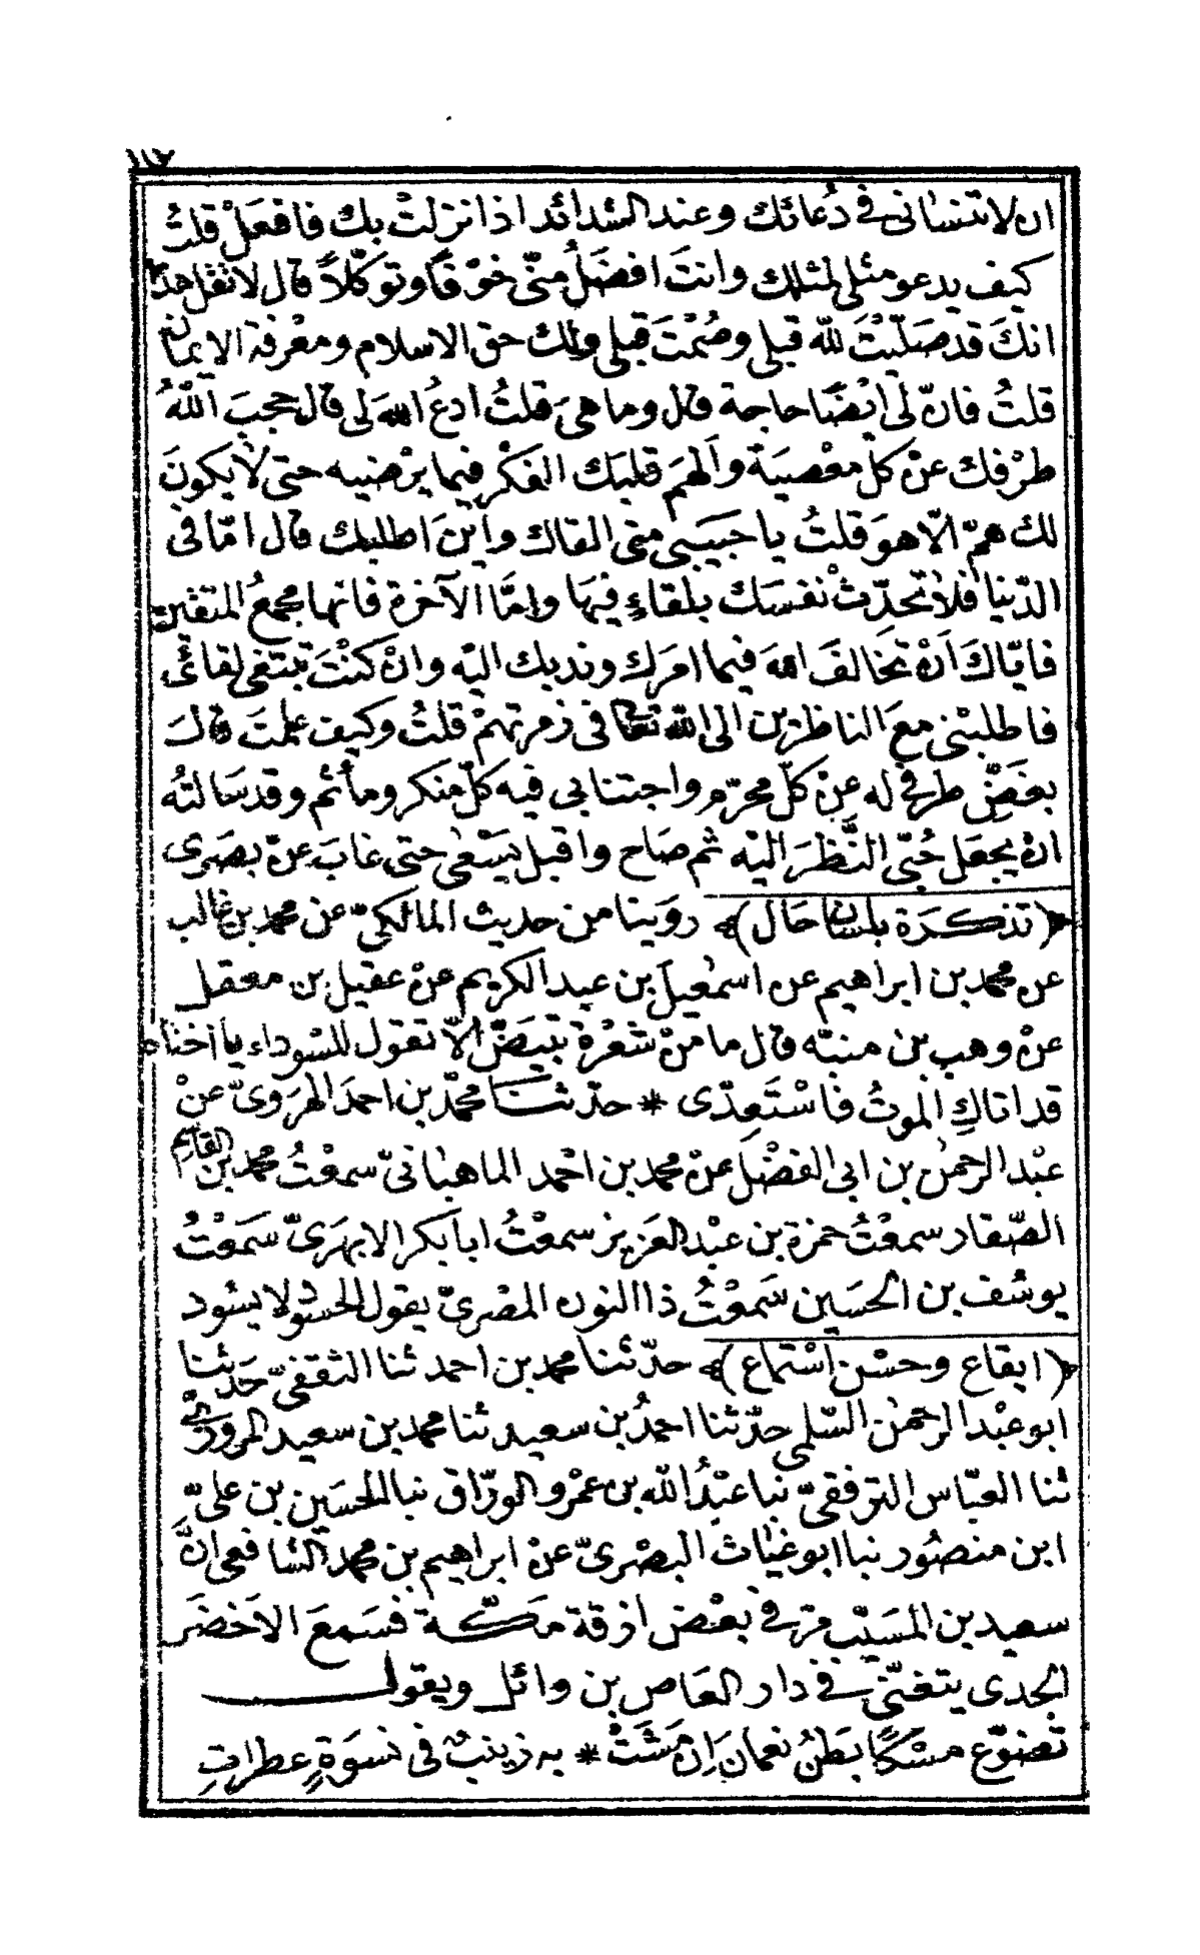 ان لا تنسانى فى دُعائك وعند الشدائد اذا نزلتْ بك فافعَلْ قلتُ
كيف يدعو مثلى لمثلك وانتَ افضَلُ منّى خوْفًا وتوكّلاً قال لا تقل هذا
انكَ قد صَلّيْتَ لله قبلى وصُمْتَ قبلى ولك حق الاسلام ومعْرفة الايمان
قلتُ فانّ لى ايْضًا حاجة قال وما هىَ قلتُ ادعُ اللهَ لى قال حجبَ اللهُ
طرْفك عنْ كلّ معْصيَة وألهمَ قلبَك الفكْر فيما يرْضيه حتى لا يكونَ
لك همّ الّا هوَ قلتُ يا حَبيَبى متى القاك وأينَ اطلبك قال امّا فى
الدّنيا فلا تحدّثْ نفسَك بلقاءٍ فيهَا وامّا الآخرة فانها مجمعُ المتقين
فايّاكَ اَنْ تخالفَ اللهَ فيما امرَك وندبك اليْه وانْ كنْتَ تبتغى لقائى
فاطلبْنى معَ الناظرين الى الله تعالى فى زمرتهمْ قلتُ وكيف علمتَ قال
بغَضّ طرفى له عنْ كلّ محرّم واجتنابى فيه كلّ منكر ومأثم وقد سَالتهُ
انْ يجعَل حُبّى النَّظرَ اليْه ثم صَاح واقبل يَسْعى حتى غابَ عنْ بصَرى
﴿تذكرَة بلسان حَال﴾ روَينا من حديث المالكىّ عن محمد بن غالب
عن محمد بن ابراهيم عن اسمٰعيل بن عبد الكريم عنْ عقيل بن معقل
عنْ وهب بن منبّه قال ما منْ شعْرة تبيَضّ الّا تقول للسّوداء يا اختاه
قد اتاكِ الموتُ فاسْتَعِدّى * حدّثنا محمّد بن احمَد الهرَوىّ عنْ
عبْد الرحمٰن بن ابى الفضْل عنْ محمد بن احْمد الماهيانىّ سمعْتُ محمد بن القاسِم
الصّفار سمعْتُ حمزة بن عبْد العزيز سمعْتُ ابا بَكر الابهَرىّ سَمعْتُ
يوسُف بن الحسَين سَمعْتُ ذا النون المصْرىّ يقول الحسود لا يسُود
﴿ايقاع وحسْن اسْتماع﴾ حدّثنا محمد بن احمد ثنا الثقفىّ حَدثنا
ابو عبْد الرحمٰن السّلمى حدّثنا احمدُ بن سعيد ثنا محمد بن سعيد المروزىّ
ثنا العبّاس الترفقىّ نبا عبْدُ الله بن عمْرو الورّاق نبا الحسَين بن علىّ
ابن منصُور نبا ابو غيٰاث البصْرىّ عنْ ابراهيم بن محمد الشافعى انَّ
سعيد بن المسَيّب مرّ فى بعْض ازقة مَكّة فسَمعَ الاخضَر
الجدى يتغنّى فى دار العَاص بن وائل ويقول
تضوّع مسْكًا بَطْنُ نعمان اِنْ مَشَتْ * به زينبٌ فى نسوَةٍ عطراتِ